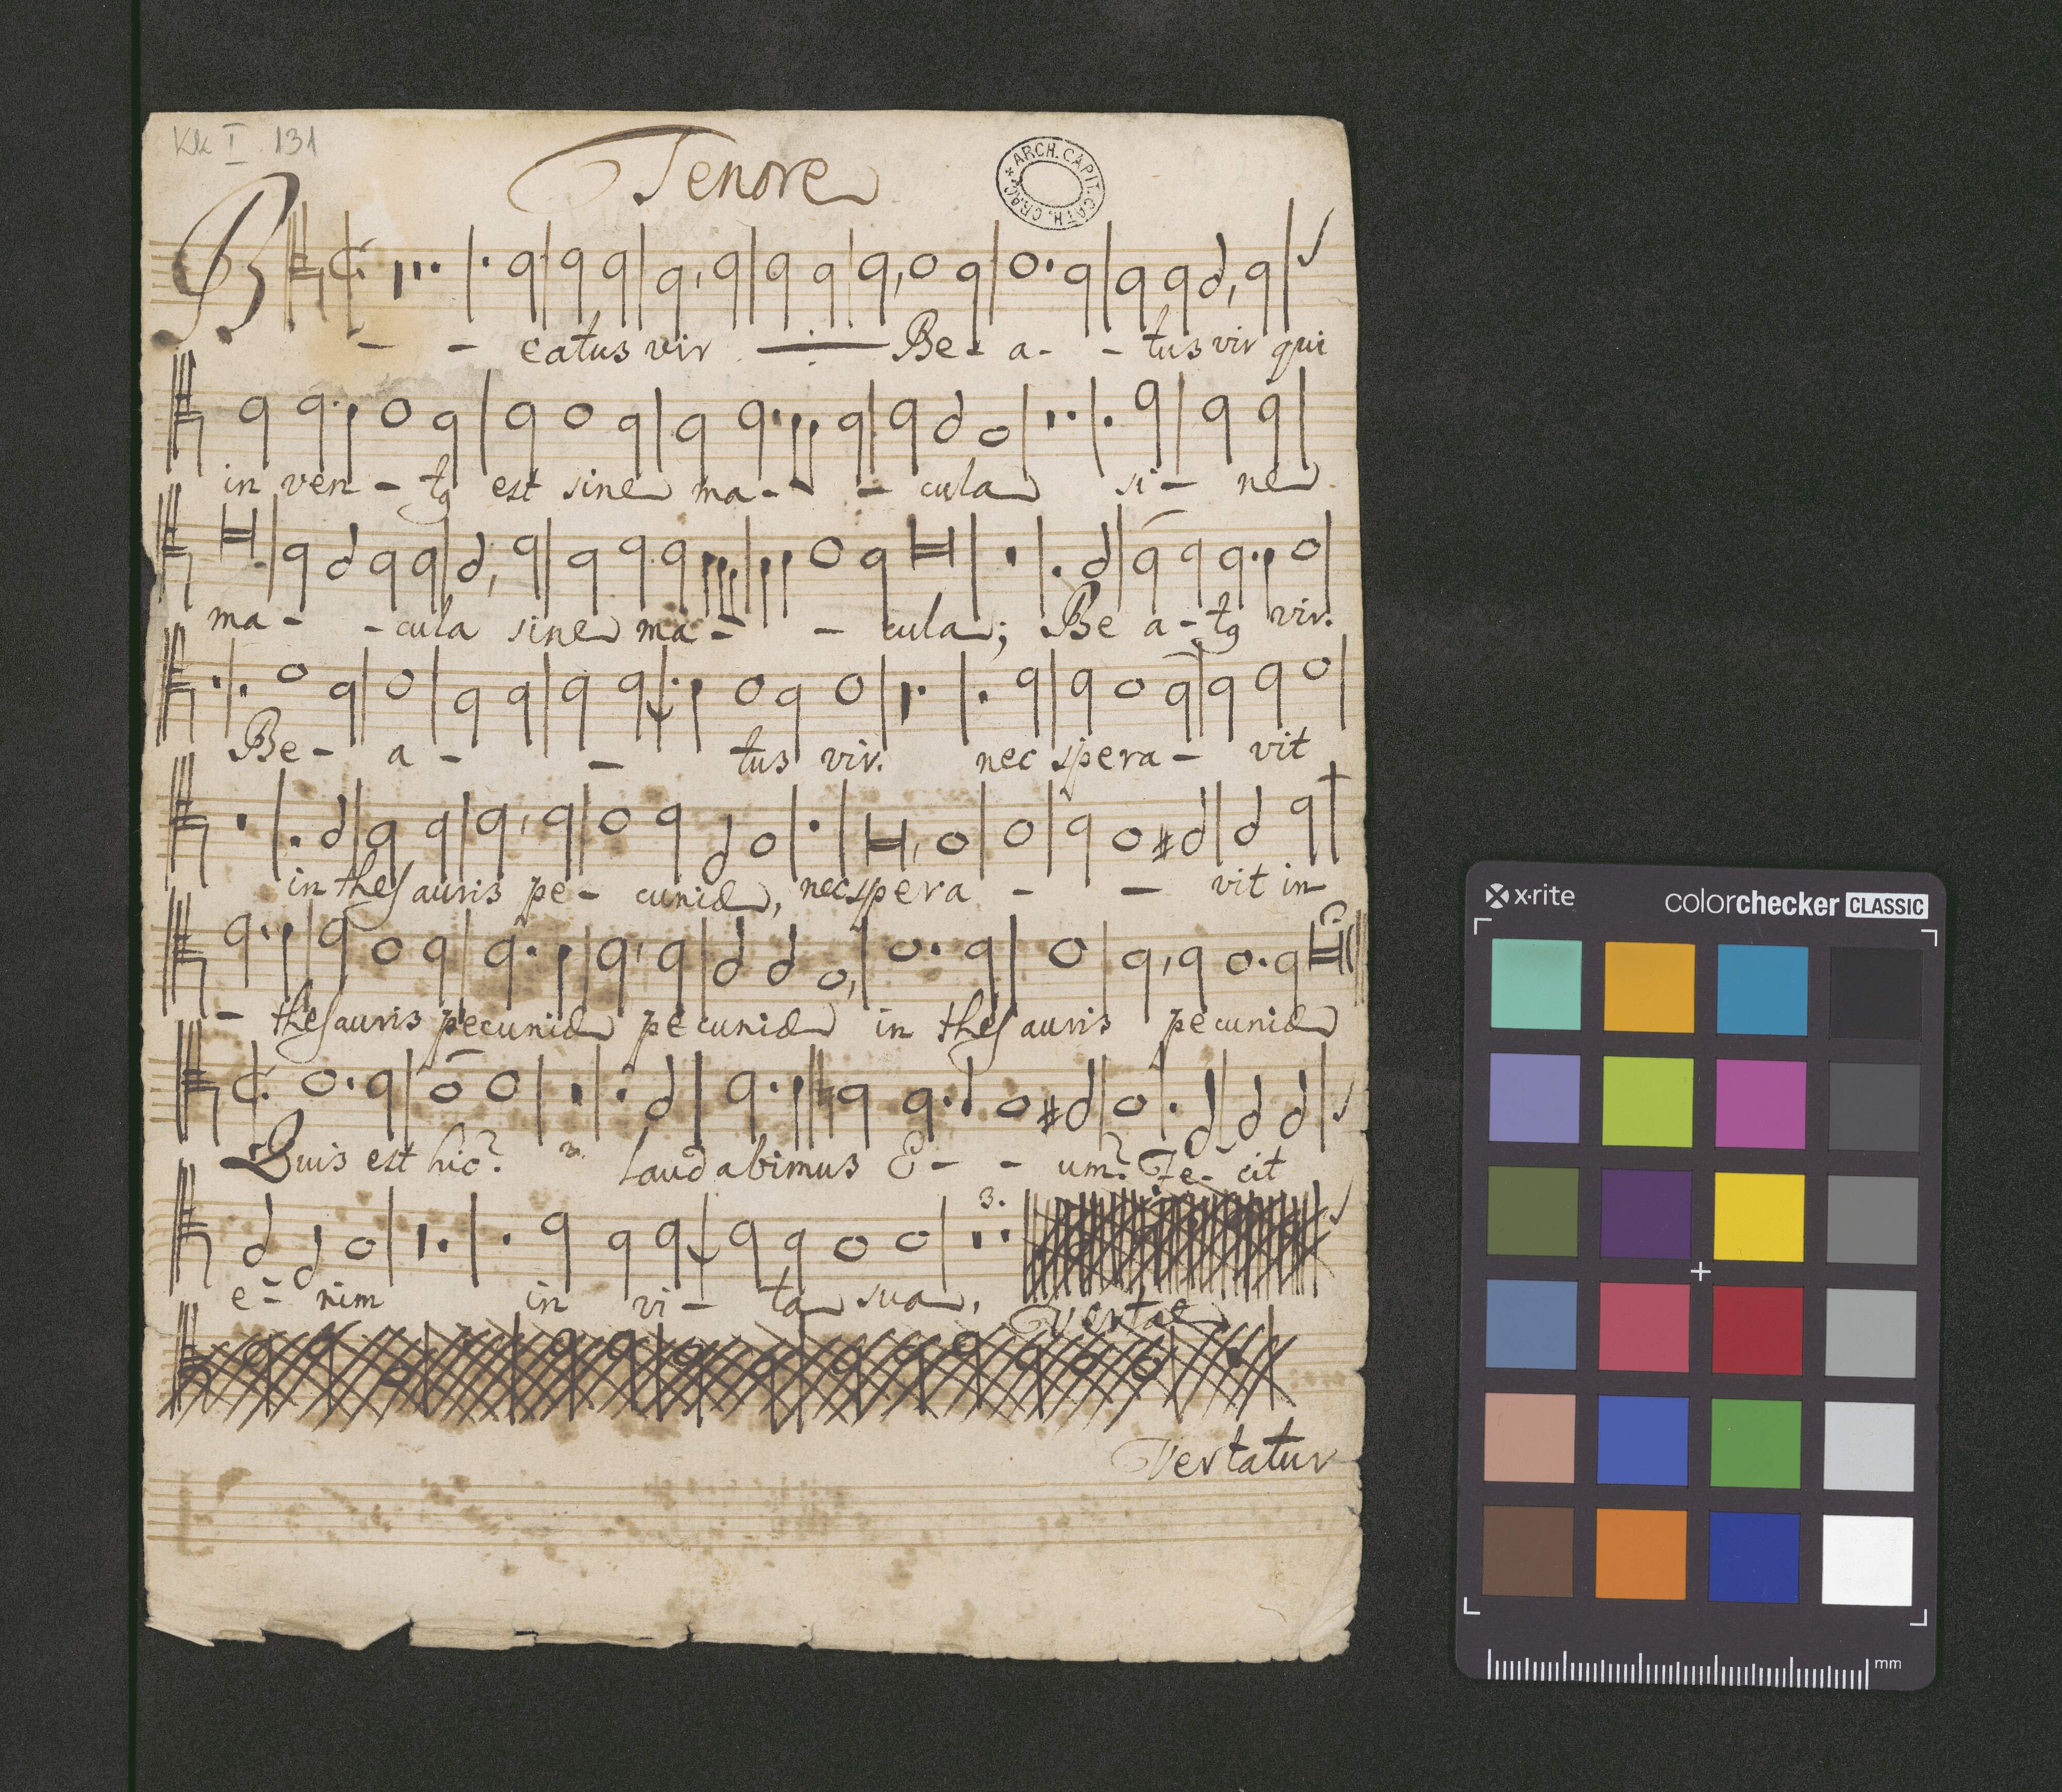 Kk I. 131
Tenore
ARCH. CAPIT. CATH. CRAC.
Beatus vir Be - a - - tus vir qui
in ven - tꝯ est sine ma - - cula si - ne
ma - - cula sine ma - - cula; Be a - tꝯ vir.
Be - a - - tus vir. nec spera - vit
in thesauris pe - cuniæ, nec spera - - vit in
- thesauris pecuniæ pecuniæ in thesauris pecuniæ
Quis est hic? 2. laudabimus E - - um? Fe - cit
3.
e - nim in vi - ta sua, Vertae
Vertatur
x·rite colorchecker CLASSIC
mm